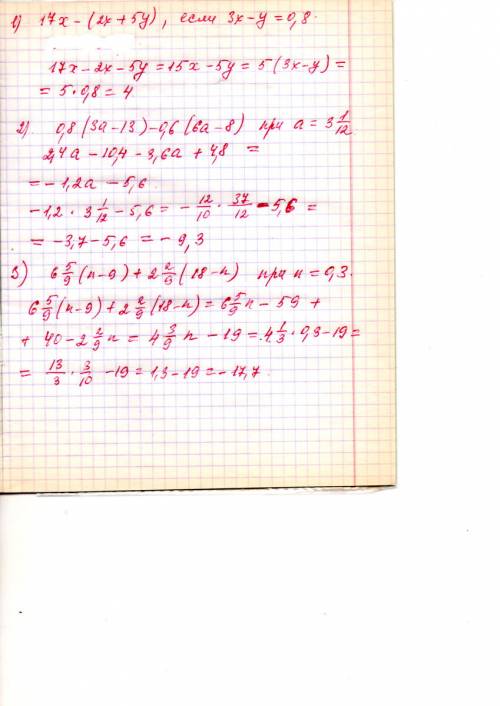 1) 17x - (2x + 5y), если 3x - y = 0,8.
17x - 2x - 5y = 15x - 5y = 5(3x - y) =
= 5 · 0,8 = 4
2) 0,8(3a - 13) - 0,6(6a - 8) при a = 3 1/12
2,4a - 10,4 - 3,6a + 4,8 =
= -1,2a - 5,6.
-1,2 · 3 1/12 - 5,6 = - 12/10 · 37/12 - 5,6 =
= -3,7 - 5,6 = -9,3
3) 6 5/9 (n - 9) + 2 2/9 (18 - n) при n = 0,3.
6 5/9 (n - 9) + 2 2/9 (18 - n) = 6 5/9 n - 59 +
+ 40 - 2 2/9 n = 4 3/9 n - 19 = 4 1/3 · 0,3 - 19 =
= 13/3 · 3/10 - 19 = 1,3 - 19 = -17,7.